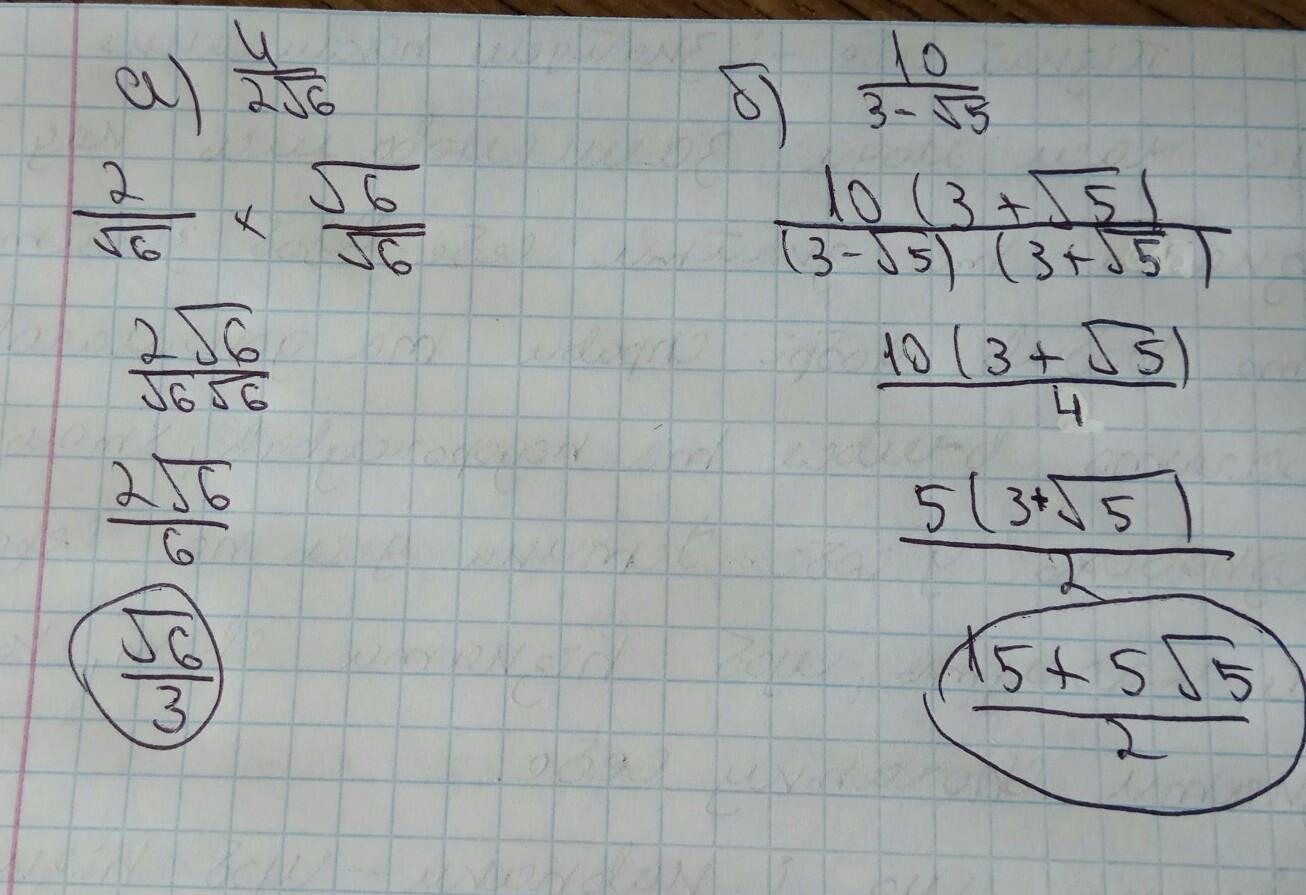 а) 4/(2√6)
2/√6 × √6/√6
2√6/(√6 √6)
2√6/6
√6/3
б) 10/(3-√5)
10(3+√5)/((3-√5)(3+√5))
10(3+√5)/4
5(3+√5)/2
(15+5√5)/2